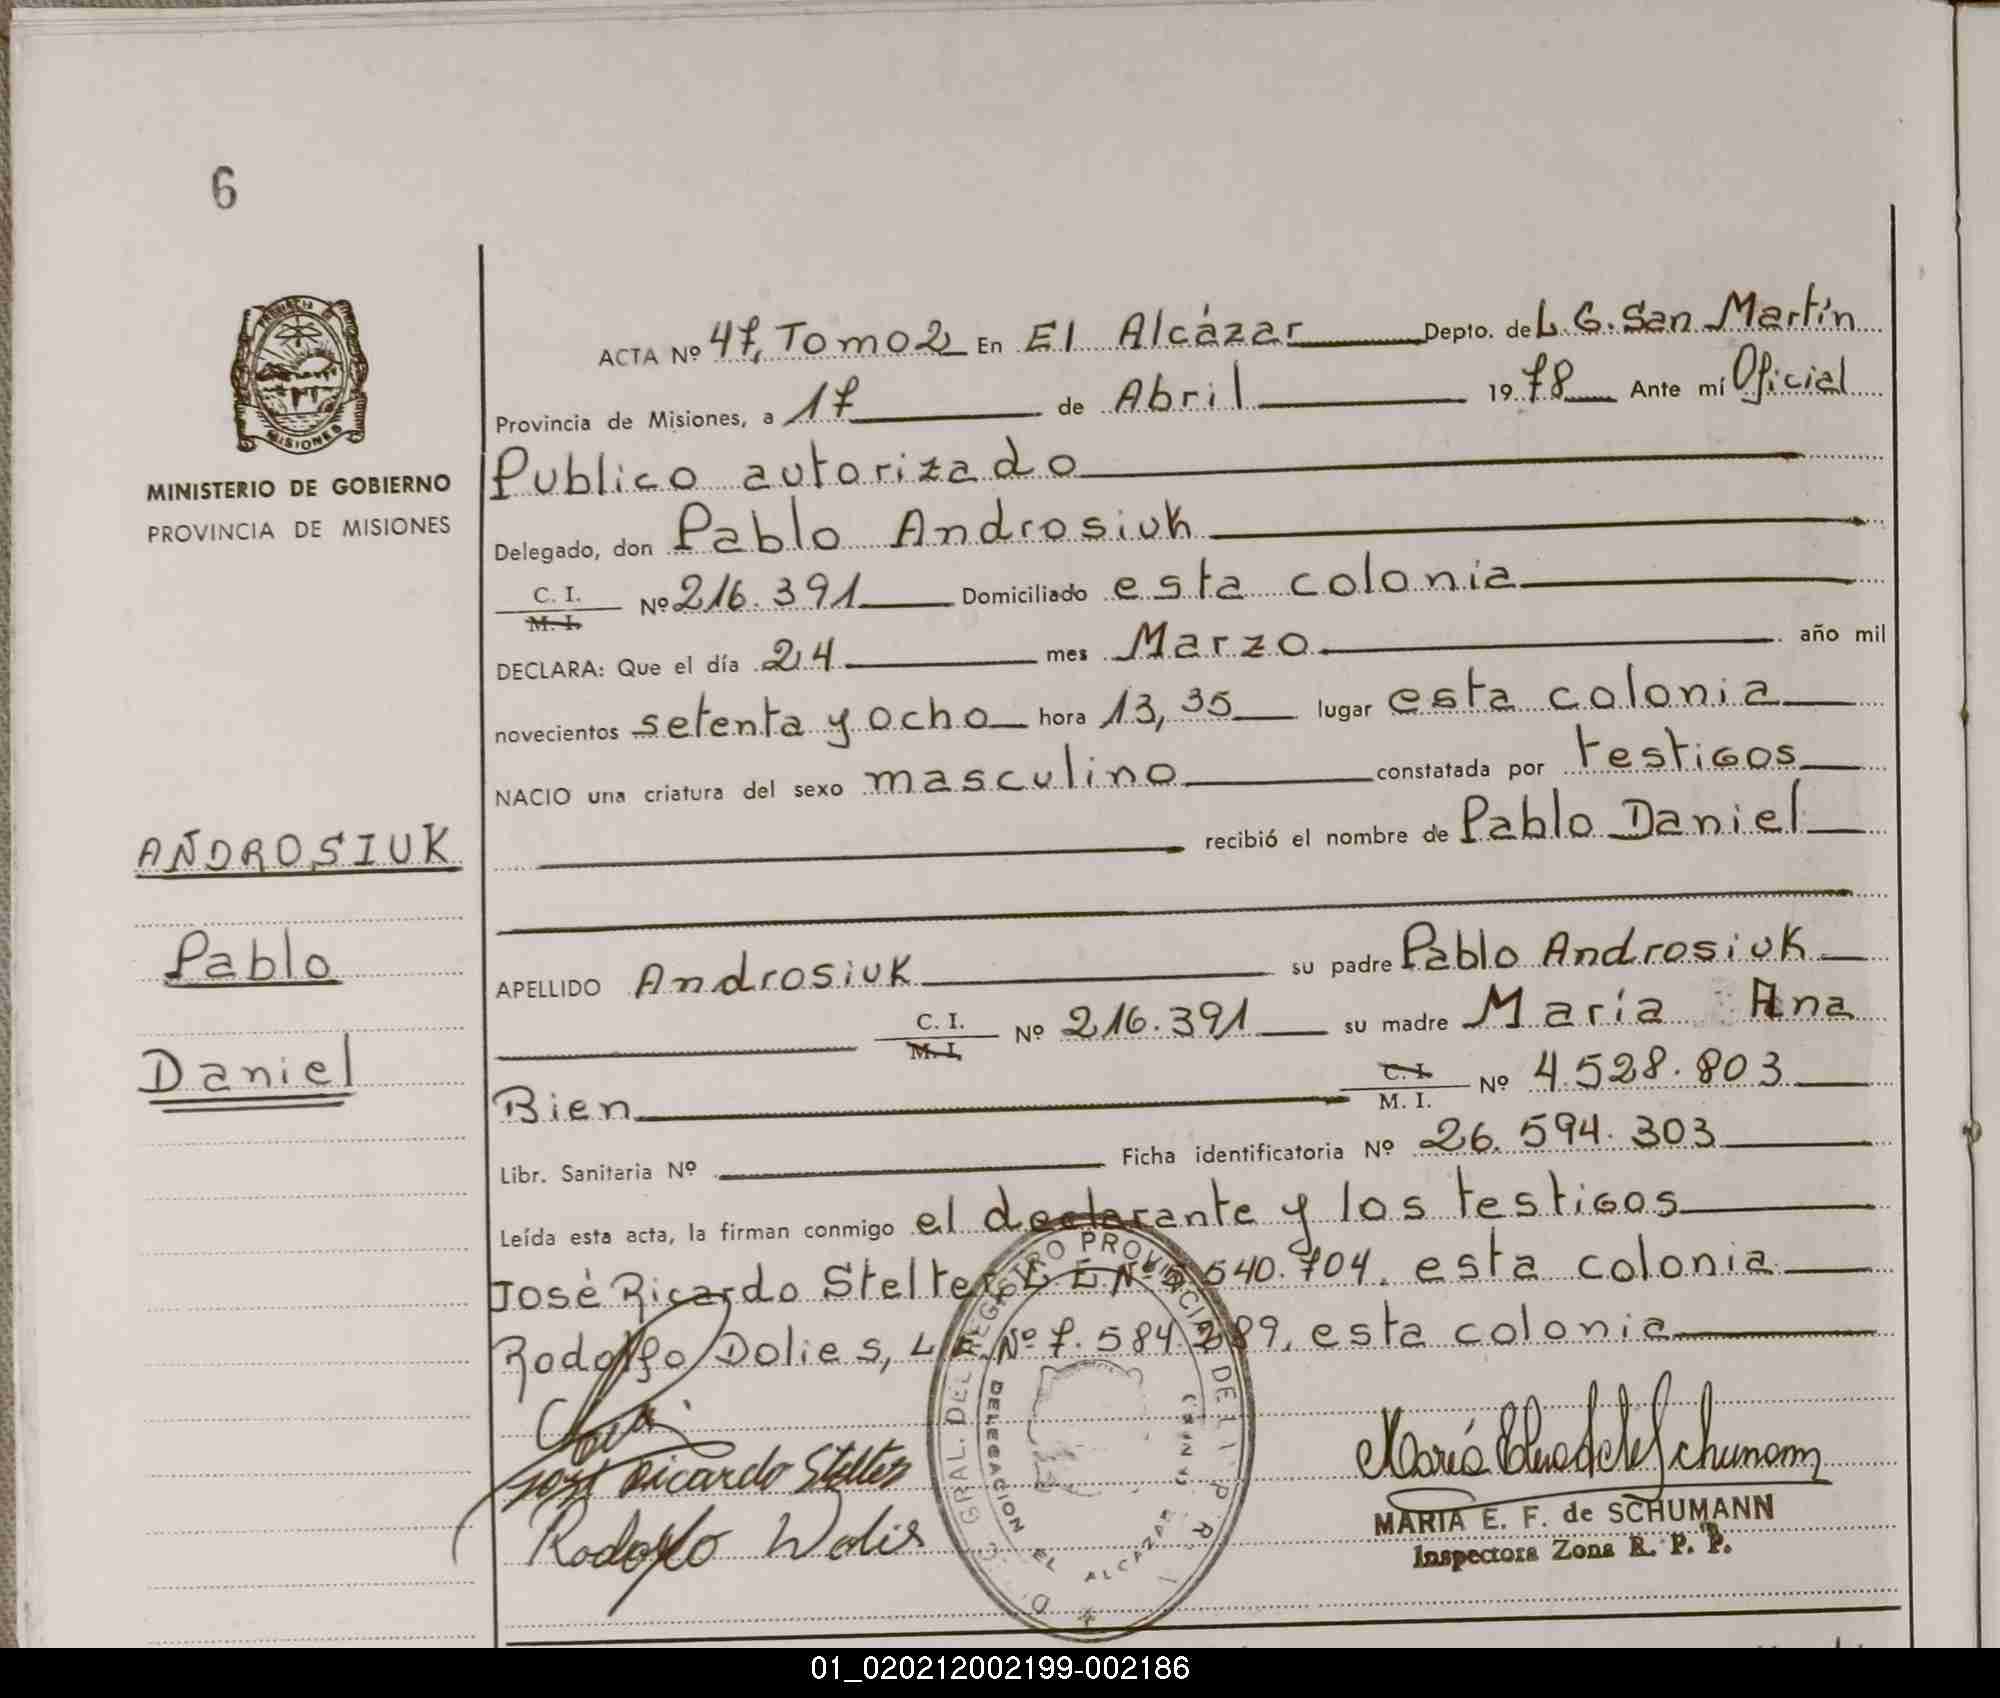 6
PROVINCIA DE
MISIONES
MINISTERIO DE GOBIERNO
PROVINCIA DE MISIONES
ANDROSIUK
Pablo
Daniel
ACTA Nº 47, Tomo 2 En El Alcázar Depto. de L. G. San Martín
Provincia de Misiones, a 17 de Abril 1978 Ante mí Oficial
Publico autorizado
Delegado, don Pablo Androsiuk
C. I.
M. I. Nº 216.391 Domiciliado esta colonia
DECLARA: Que el día 24 mes Marzo año mil
novecientos setenta y ocho hora 13,35 lugar esta colonia
NACIO una criatura del sexo masculino constatada por testigos
recibió el nombre de Pablo Daniel
APELLIDO Androsiuk su padre Pablo Androsiuk
C. I.
M. I. Nº 216.391 su madre María Ana
Bien C. I.
M. I. Nº 4.528.803
Libr. Sanitaria Nº Ficha identificatoria Nº 26.594.303
Leída esta acta, la firman conmigo el declarante y los testigos
José Ricardo Stelter L E Nº 540.704, esta colonia
Rodolfo Dolies, L.E. Nº 7.584.289, esta colonia
José Ricardo Stelter
Rodolfo Dolis
GRAL. DEL REGISTRO PROVINCIAL DE
DELEGACION EL ALCAZAR
MARIA E. F. de SCHUMANN
Inspectora Zona R. P. P.
01_020212002199-002186